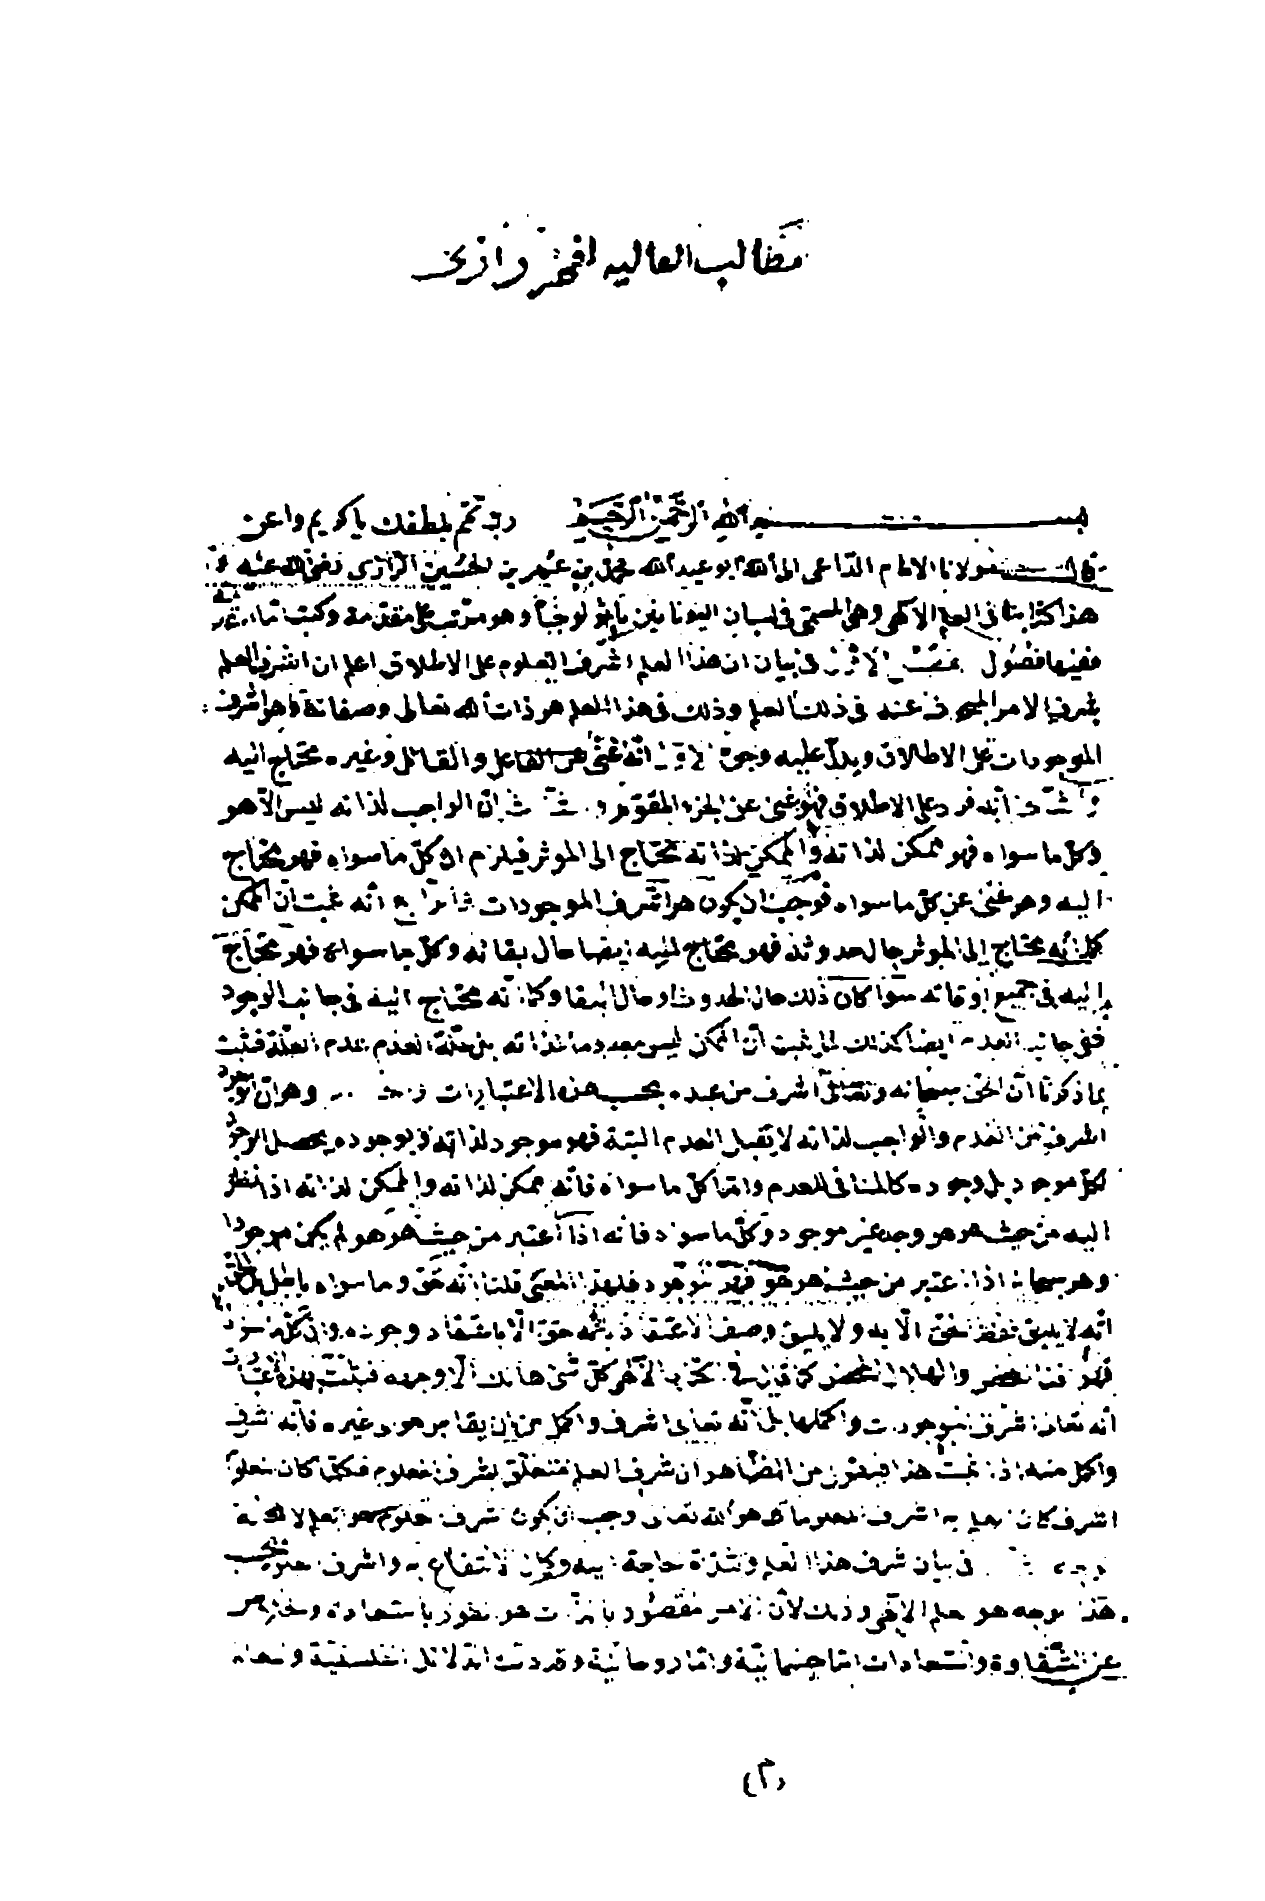 مطالب العاليه لفخر رازى
بسم الله الرحمن الرحيم رب تمم بلطفك يا كريم واعن
قال مولانا الامام الداعى الى الله ابو عبد الله محمد بن عمر بن الحسين الرازى رضى الله عنه
هذا كتابنا فى العلم الالهى وهى المسمى فى لسان اليونانيين باثولوجيا وهو مرتب على مقدمة وكتب اما
ففيها فصول الفصل الاول فى بيان ان هذا العلم اشرف العلوم على الاطلاق اعلم ان اشرف العلم
بشرف الامر المبحوث عنه فى ذلك العلم وذلك فى هذا العلم هو ذات الله تعالى وصفاته وهو اشرف
الموجودات على الاطلاق ويدل عليه وجوه الاول انه غنى عن الفاعل والقابل وغيره محتاج اليه
انه فرد على الاطلاق فهو غنى عن الجزء المقوم ان الواجب لذاته ليس الا هو
وكل ما سواه فهو ممكن لذاته والممكن لذاته محتاج الى الموثر فيلزم ان كل ما سواه فهو محتاج
اليه وهو غنى عن كل ما سواه فوجب ان يكون هو اشرف الموجودات الرابع انه ثبت ان الممكن
كما انه محتاج الى الموثر حال حدوثه فهو محتاج اليه ايضا حال بقائه وكل ما سواه فهو محتاج
اليه فى جميع اوقاته سوا كان ذلك حال الحدوث او حال البقا وكما انه محتاج اليه فى جانب الوجود
ففى جانب العدم ايضا كذلك لما ثبت ان الممكن ليس معدوما لذاته بل علة العدم عدم العلة فثبت
بما ذكرنا ان الحق سبحانه وتعالى اشرف من غيره بحسب هذه الاعتبارات وهو ان الوجود
اشرف من العدم والواجب لذاته لا يقبل العدم البتة فهو موجود لذاته وبوجوده يحصل الوجود
لكل موجود بل وجوده كالمنافى للعدم واما كل ما سواه فانه ممكن لذاته والممكن لذاته اذا نظر
اليه من حيث هو هو وجد غير موجود وكل ما سواه فانه اذا اعتبر من حيث هو هو لم يكن موجودا
وهو سبحانه اذا اعتبر من حيث هو هو فهو موجود فلهذا المعنى قلنا انه حق وما سواه باطل
انه لا يليق لفظ الحق الا به ولا يليق وصف الاعتقاد بانه حق الا باعتقاد وجوده وان كل ما سواه
فهو الفنا المحض والهلاك المحض كما قال فى الكتاب الالهى كل شى هالك الا وجهه فثبت بهذه الاعتبارات
انه تعالى اشرف الموجودات واكملها بل انه تعالى اشرف واكمل من ان يقال هو غيره فانه اشرف
واكمل منه اذا ثبت هذا فنقول من الظاهر ان شرف العلم متعلق بشرف المعلوم فكلما كان المعلوم
اشرف كان العلم به اشرف المعلومات هو الله تعالى وجب ان يكون اشرف العلوم هو العلم الالهى
فى بيان شرف هذا العلم وشدة الحاجة اليه وكمال الانتفاع به واشرف العلوم بحسب
هذا الوجه هو العلم الالهى وذلك لان الامر المقصود بالذات هو الفوز بالسعادة والخلاص
عن الشقاوة والسعادات اما جسمانية واما روحانية وقد دلت الدلائل الفلسفية
(٣)